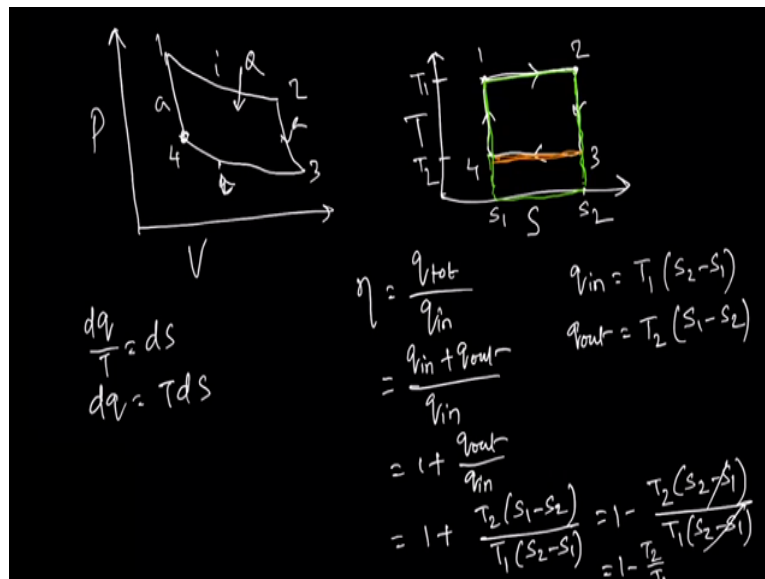 1
i
Q
2
a
P
4
3
V
1
2
T1
T
T2
4
3
S1
S
S2
dq/T = dS
dq = TdS
η = qtot/qin
= (qin + qout)/qin
= 1 + qout/qin
= 1 + T2(S1-S2)/T1(S2-S1) = 1 - T2(S2-S1)/T1(S2-S1)
= 1 - T2/T1
qin = T1(S2-S1)
qout = T2(S1-S2)